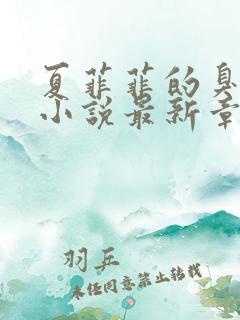 夏菲菲的臭
小说最新章
羽乒
未经同意禁止转载